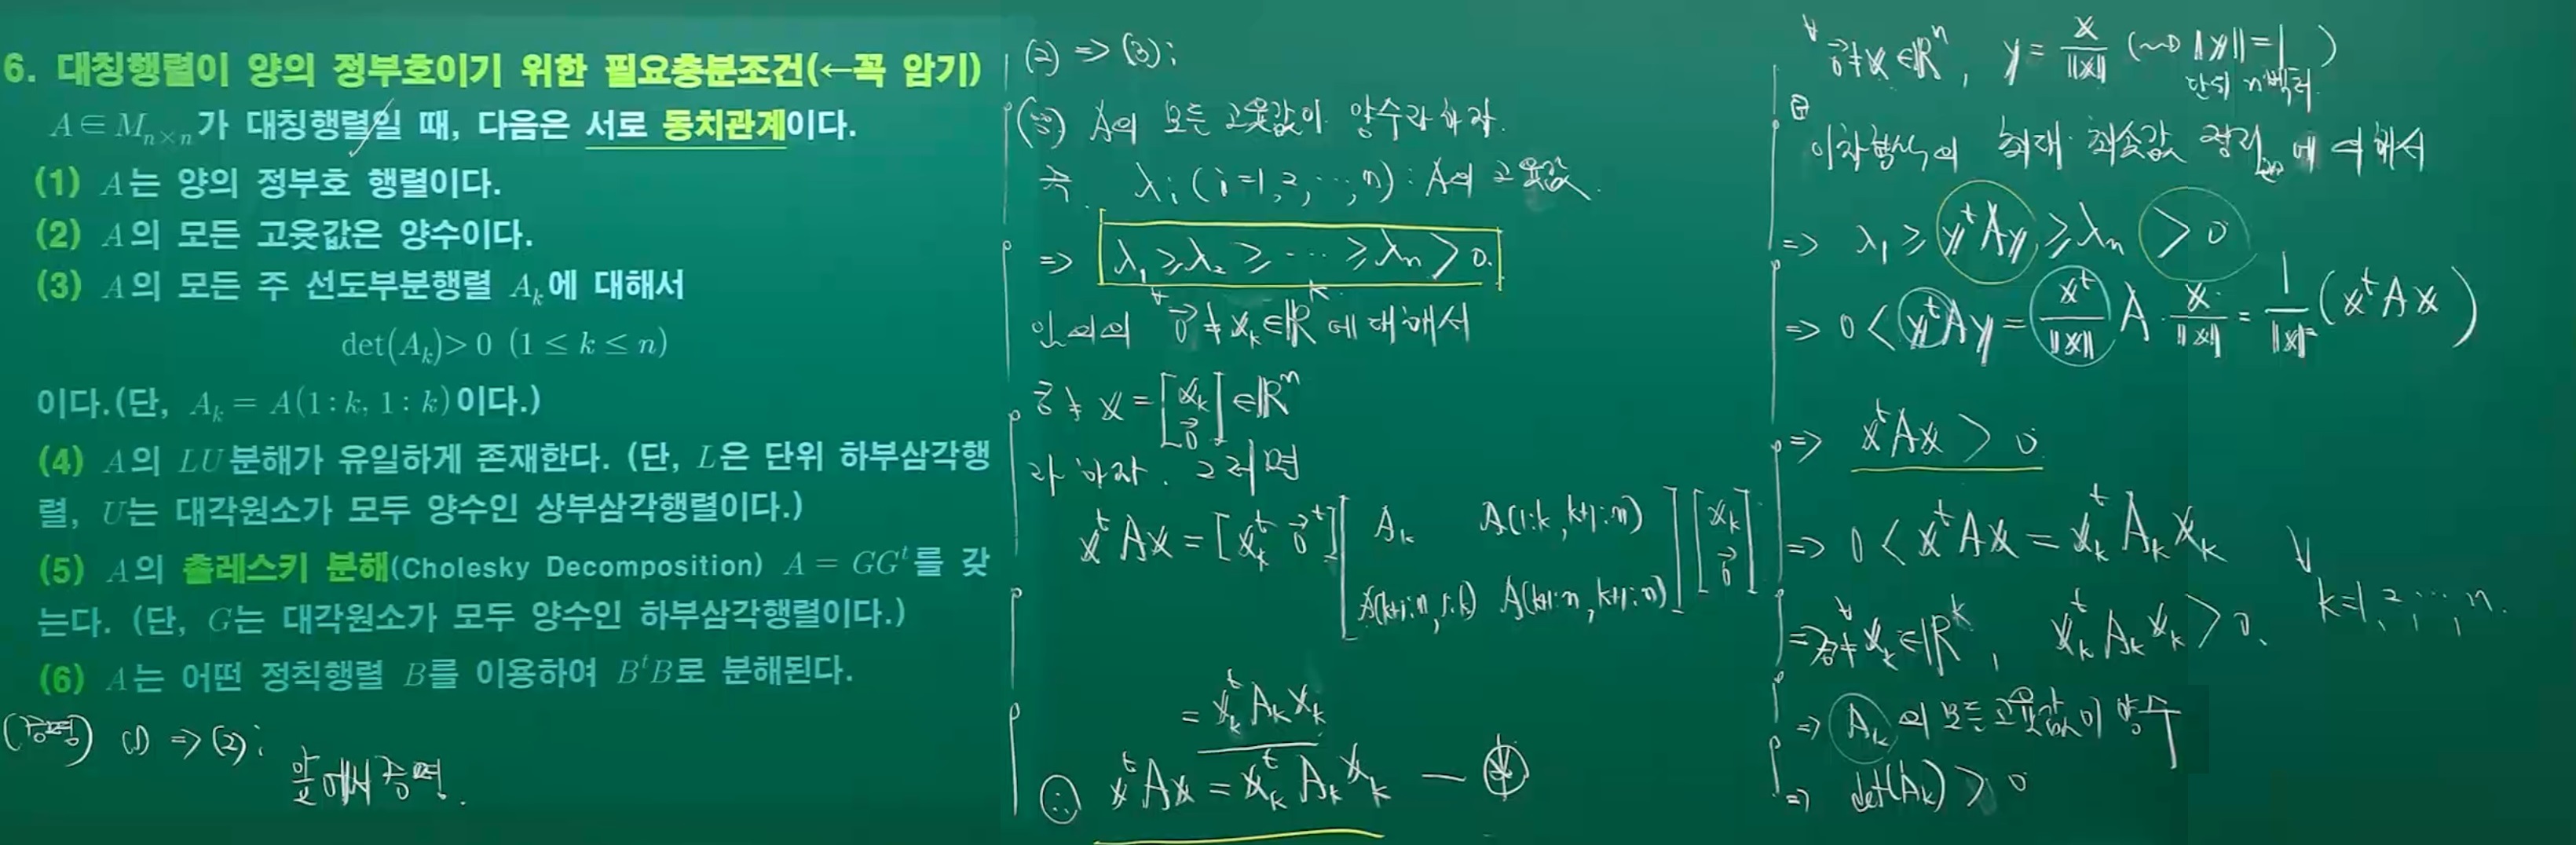 6. 대칭행렬이 양의 정부호이기 위한 필요충분조건(←꼭 암기)
A∈M_{n×n}가 대칭행렬일 때, 다음은 서로 동치관계이다.
(1) A는 양의 정부호 행렬이다.
(2) A의 모든 고윳값은 양수이다.
(3) A의 모든 주 선도부분행렬 A_k에 대해서
det(A_k)>0 (1≤k≤n)
이다.(단, A_k = A(1:k, 1:k)이다.)
(4) A의 LU분해가 유일하게 존재한다. (단, L은 단위 하부삼각행
렬, U는 대각원소가 모두 양수인 상부삼각행렬이다.)
(5) A의 촐레스키 분해(Cholesky Decomposition) A = GG^t를 갖
는다. (단, G는 대각원소가 모두 양수인 하부삼각행렬이다.)
(6) A는 어떤 정칙행렬 B를 이용하여 B^tB로 분해된다.
(증명) (1) ⇒ (2);
앞에서 증명.
(2) ⇒ (3);
(증) A의 모든 고윳값이 양수라 하자.
즉 λ_i (i=1,2,⋯,n) : A의 고윳값.
⇒ λ_1 ≥ λ_2 ≥ ⋯ ≥ λ_n > 0.
임의의 0⃗ ≠ x_k ∈ ℝ^k 에 대해서
0⃗ ≠ x = [x_k 0⃗] ∈ ℝ^n
라 하자. 그러면
x^tAx = [x_k^t 0⃗^t] [A_k A(1:k, k+1:n) A(k+1:n, 1:k) A(k+1:n, k+1:n)] [x_k 0⃗]
= x_k^t A_k x_k
∴ x^tAx = x_k^t A_k x_k — ⊛
∀ 0⃗≠x∈ℝ^n, y = x/‖x‖ (⇝ ‖y‖=1)
단위 n벡터.
이차형식의 최대·최솟값 정리에 의해서
⇒ λ_1 ≥ y^tAy ≥ λ_n > 0
⇒ 0 < y^tAy = x^t/‖x‖ A · x/‖x‖ = 1/‖x‖² (x^tAx)
⇒ x^tAx > 0
⇒ 0 < x^tAx = x_k^t A_k x_k
∀ k=1,2,⋯,n.
⇒ ∀ 0⃗≠x_k∈ℝ^k, x_k^t A_k x_k > 0.
⇒ A_k의 모든 고윳값이 양수
⇒ det(A_k) > 0